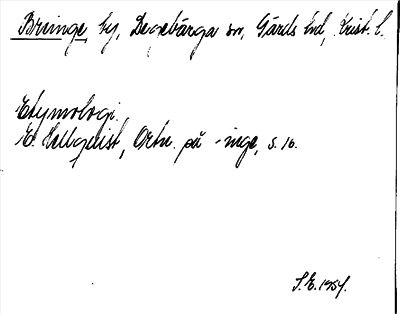 Bringe by, Degebärga sn, Gärds hd, Krist. l.
Etymologi.
E. Hellquist, Ortn. på -inge, s. 16.
S.E. 1954.